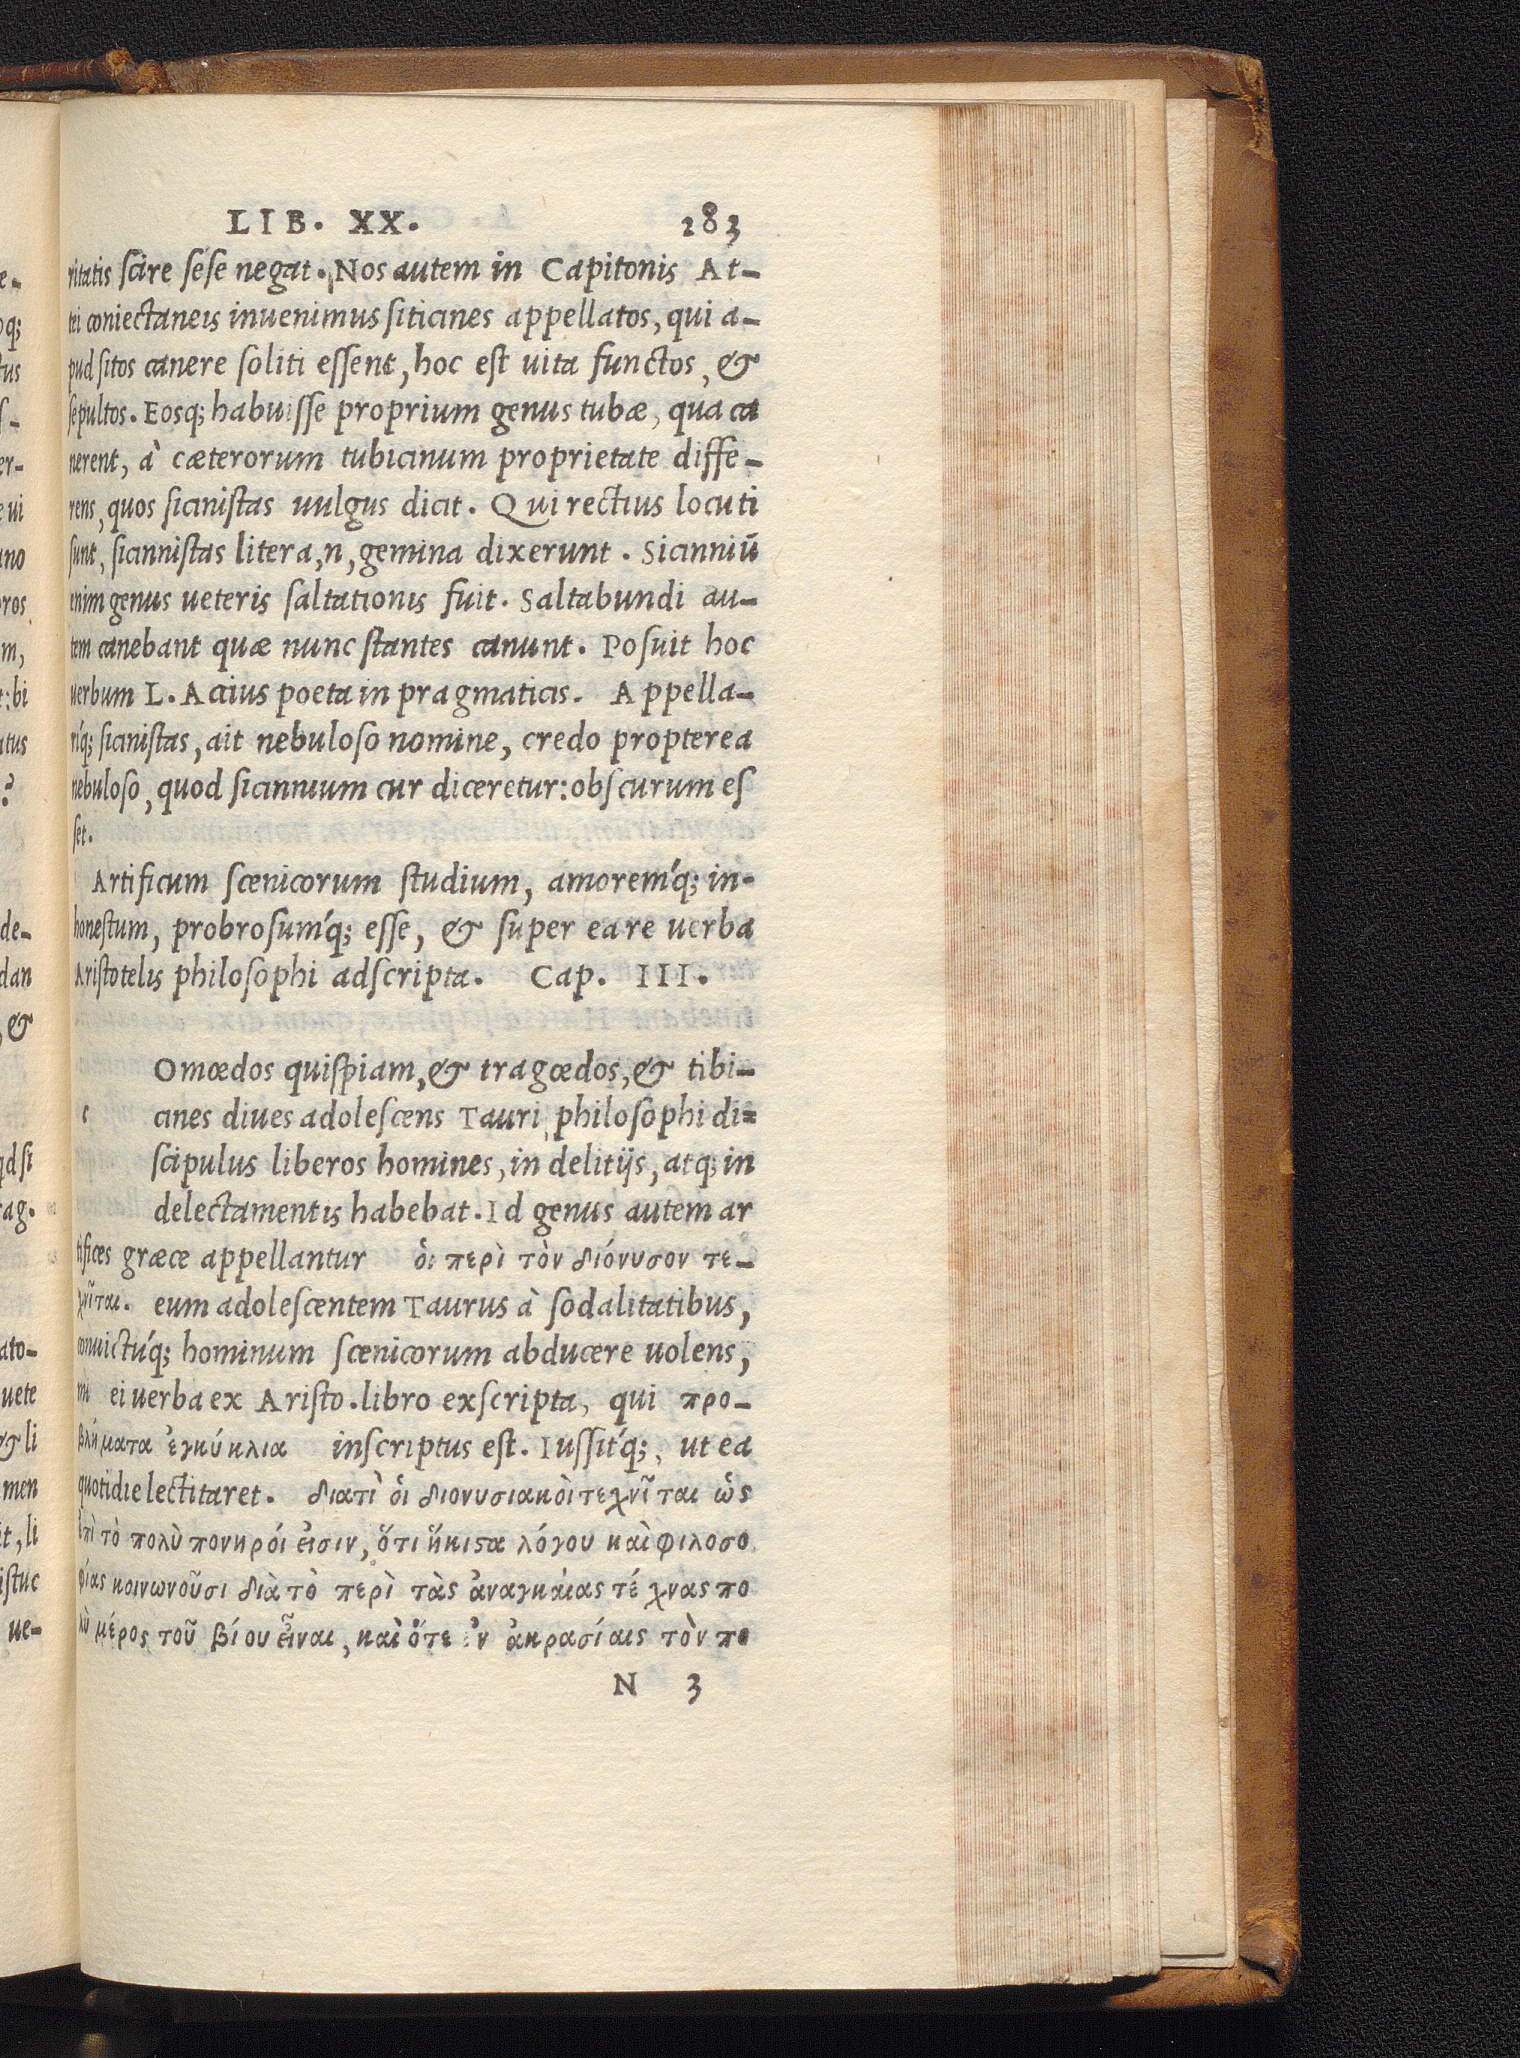 LIB. XX. 283
ritatis scire sese negat. Nos autem in Capitonis At-
tei coniectaneis inuenimus siticines appellatos, qui a-
pud sitos canere soliti essent, hoc est uita functos, &
sepultos. Eosq; habuisse proprium genus tubæ, qua ca
nerent, à cæterorum tubicinum proprietate diffe-
rens, quos sicinistas uulgus dicit. Qui rectius locuti
sunt, sicinnistas litera, n, gemina dixerunt. Sicinniū
enim genus ueteris saltationis fuit. Saltabundi au-
tem canebant quæ nunc stantes canunt. Posuit hoc
uerbum L. Acius poeta in pragmaticis. Appella-
ríq; sicinistas, ait nebuloso nomine, credo propterea
nebuloso, quod sicinnium cur diceretur: obscurum es
set.
Artificum scenicorum studium, amorem'q; in-
honestum, probrosum'q; esse, & super ea re uerba
Aristotelis philosophi adscripta. Cap. III.
Omœdos quispiam, & tragœdos, & tibi-
c cines diues adolescens Tauri philosophi di=
scipulus liberos homines, in delitijs, atq; in
delectamentis habebat. Id genus autem ar
tifices græce appellantur ὁι περὶ τὸν διόνυσον τε-
χνῖται. eum adolescentem Taurus à sodalitatibus,
conuictú'q; hominum scenicorum abducere uolens,
ei uerba ex Aristo. libro exscripta, qui προ-
βλήματα ἐγκύκλια inscriptus est. Iussit'q;, ut ea
quotidie lectitaret. διατὶ ὁι διονυσιακὸι τεχνῖται ὡς
ἐπὶ τὸ πολὺ πονηρόι ἐισιν, ὅτι ἥκιστα λόγου καὶ φιλοσο
φίας κοινωνοῦσι διὰ τὸ περὶ τὰς ἀναγκάιας τέχνας πο
λὺ μέρος τοῦ βίου ἔιναι, καὶ ὅτε ἐν ἀκρασίαις τὸν πο
N 3